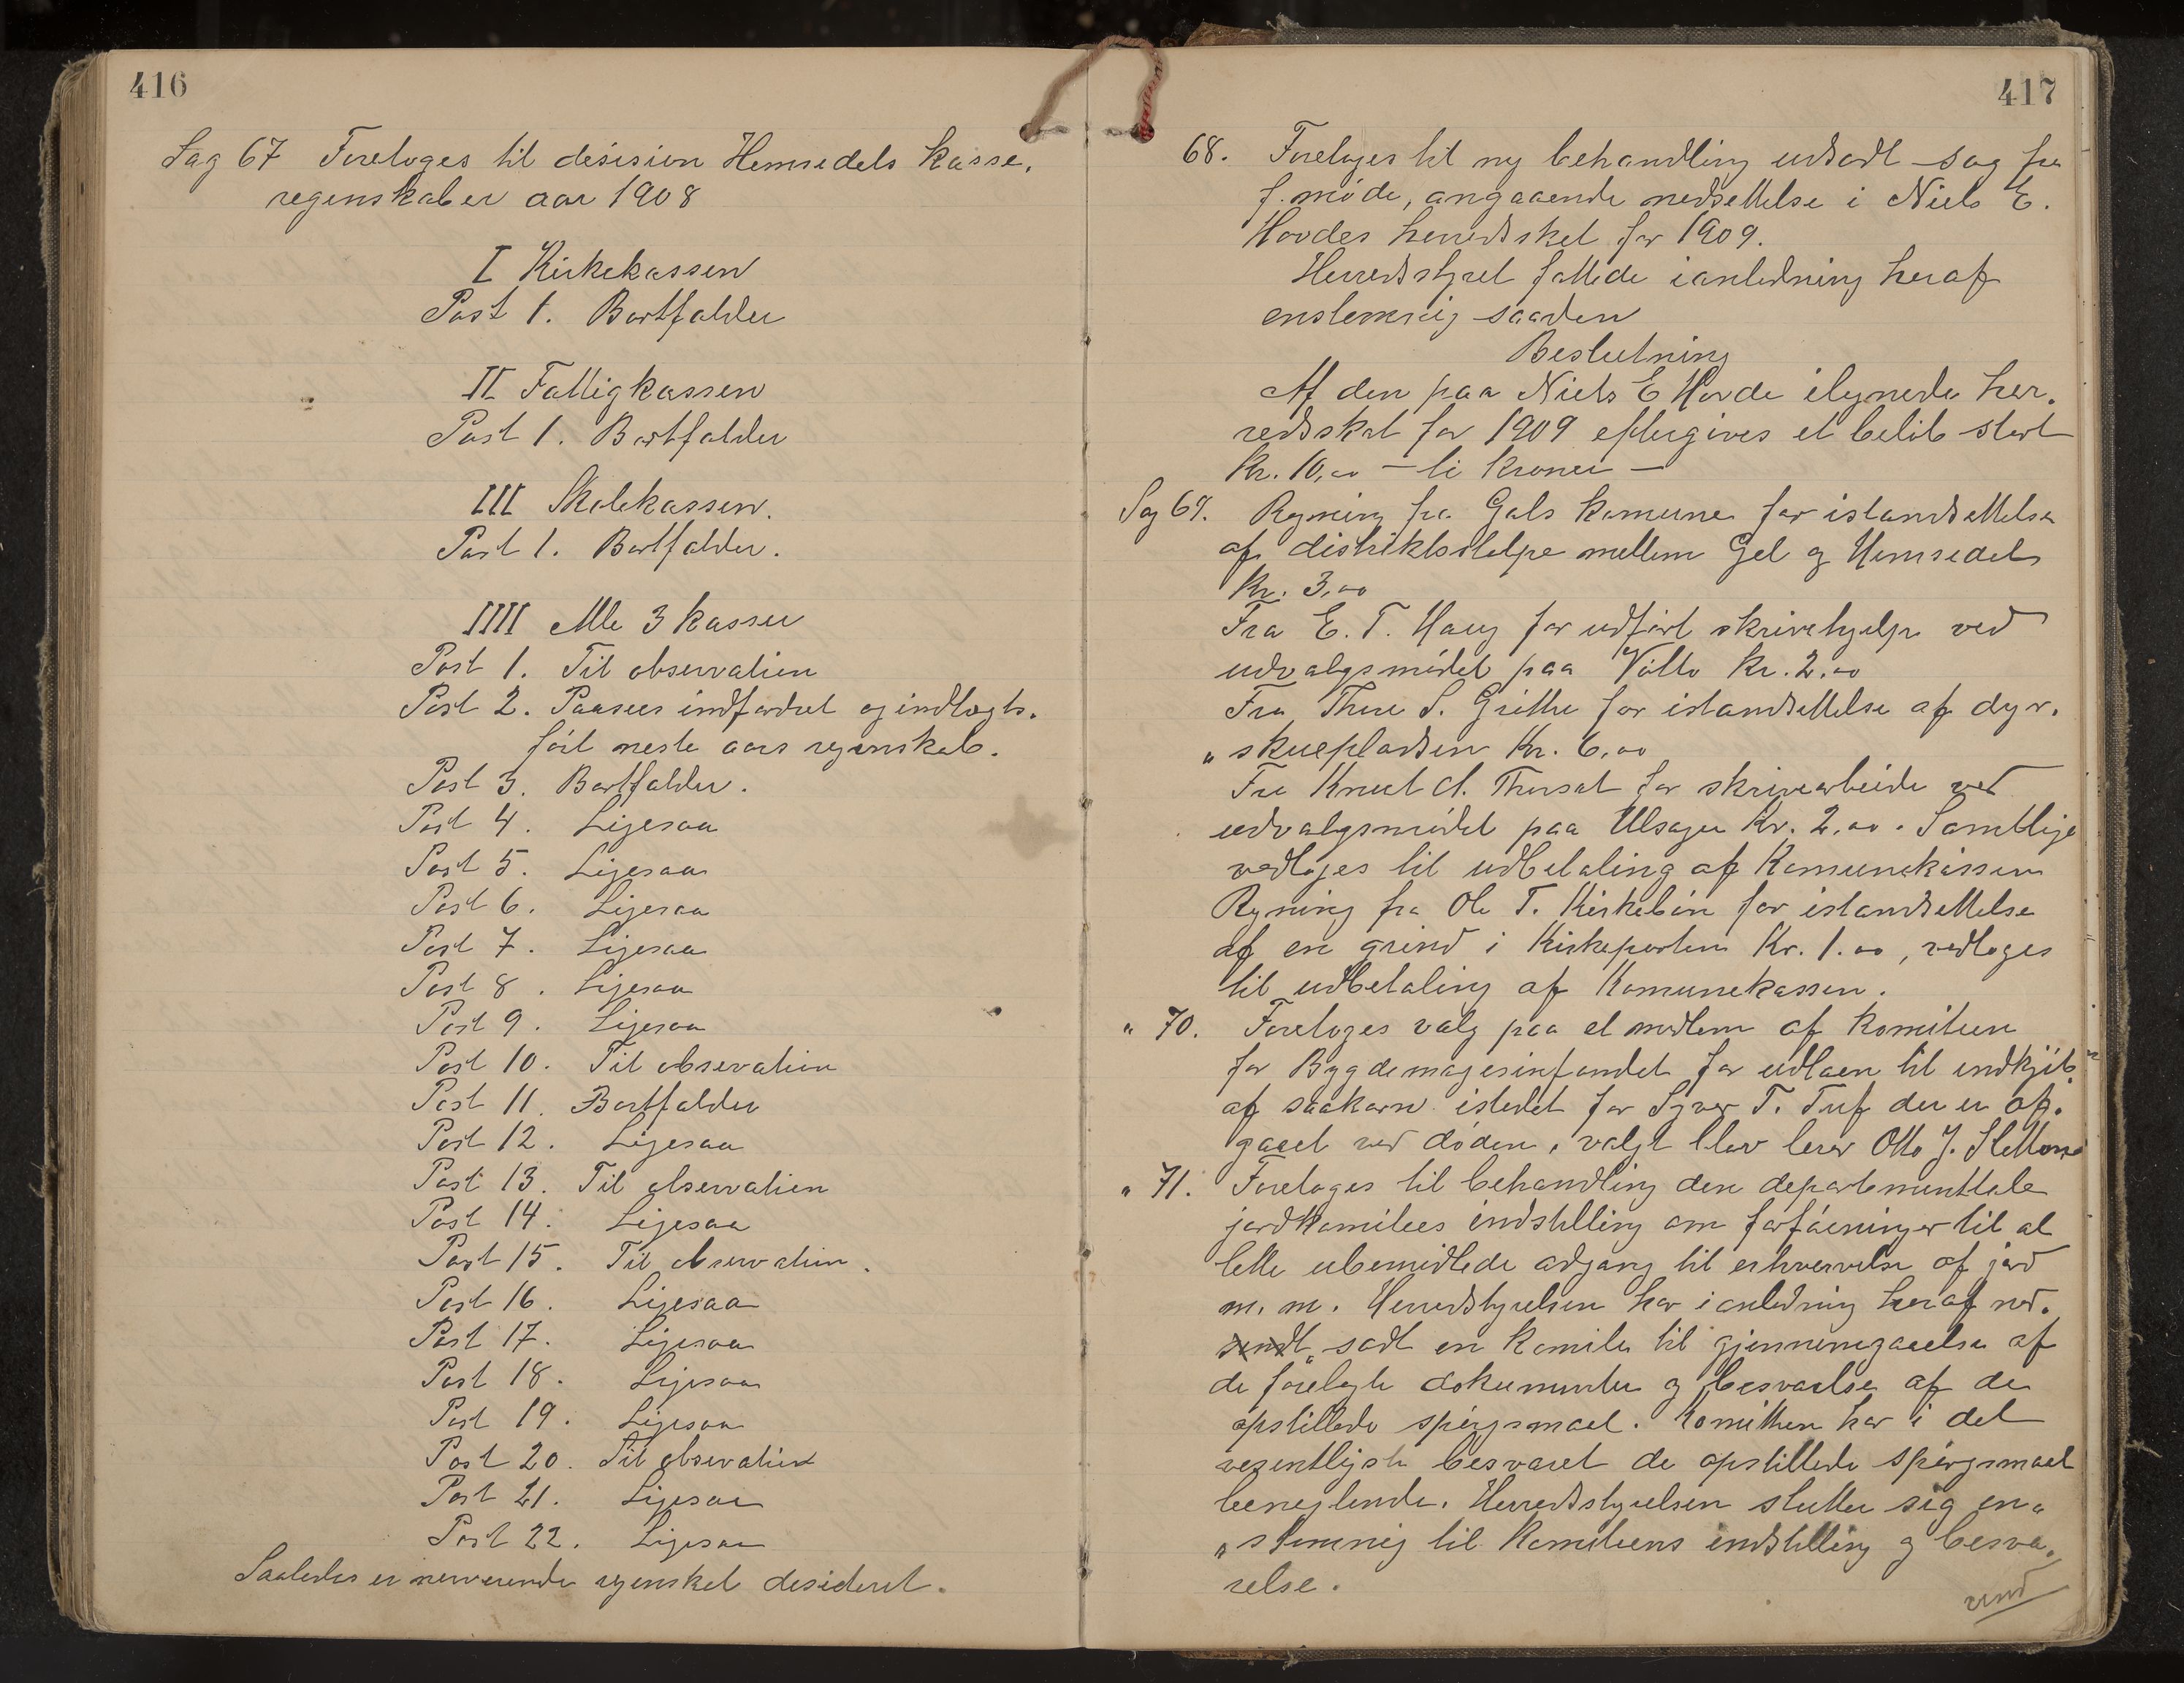 416
Sag 67 Foretoges til desision Hemsedels kasse,
regenskaber aar 1908
I Kirkekassen
Post 1. Bortfalder
II Fattigkassen
Post 1. Bortfalder
III Skolekassen.
Post 1. Bortfalder.
IIII Alle 3 kasser
Post 1. Til observation
Post 2. Paasees indfordret og indtægts.
ført neste aars regenskab.
Post 3. Bortfalder.
Post 4. Ligesaa
Post 5. Ligesaa
Post 6. Ligesaa
Post 7. Ligesaa
Post 8. Ligesaa
Post 9. Ligesaa
Post 10. Til observation
Post 11. Bortfalder
Post 12. Ligesaa
Post 13. Til observation
Post 14. Ligesaa
Post 15. Til observation.
Post 16. Ligesaa
Post 17. Ligesaa
Post 18. Ligesaa
Post 19. Ligesaa
Post 20. Til observation
Post 21. Ligesaa
Post 22. Ligesaa
Saaledes er nerverende regenskab desideret.
417
68. Foretoges til ny behandling udsadt sag fra
f. møde, angaaende nedsettelse i Niels E.
Hovdes herredsskat for 1909.
Herredsstyret fattede ianledning heraf
enstemmig saaden
Beslutning
Af den paa Niels E Hovde ilignede her,
redsskat for 1909 eftergives et beløb stort
Kr. 10,00 – ti kroner –
Sag 69. Regning fra Gols komune for istandsettelse
af distriktsstolpe mellem Gol og Hemsedal
Kr. 3,00
Fra E. T. Haug for udført skrivehjelp ved
udvalgsmødet paa Kr. 2,00
Fra Thore S. Grøthe for istandsettelse af dyr,
„ skuepladsen Kr. 6,00
Fra Knut A. for skrivearbeide ved
udvalgsmødet paa Ulsager Kr. 2,00. Samtlige
vedtoges til udbetaling af Komunekassen
Regning fra Ole T. Kirkebøn for istandsettelse
af en grind i Kirkeporten Kr. 1.00, vedtoges
til udbetaling af Komunekassen.
„ 70. Foretoges valg paa et medlem af komiteen
for Bygdemagasinfondet for udlaan til indkjøb
af saakorn istedet for Syver T. Tuf der er af,
gaaet ved døden, valgt blev lerer Otto J.
„ 71. Foretoges til behandling den departementtale
jordkomitees indstilling om forføininger til at
lette ubemidlede adgang til erhvervelse af jord
m. m. Herredstyrelsen har i anledning heraf ned.
sendt „ sadt en komite til gjennemgaaelse af
de forelagte dokumenter og besvaelse af de
opstillede spørgsmaal. Komitteen har i det
vesentligste besvaret de opstillede spørgsmaal
benegtende. Herredstyrelsen slutter sig en„
„ stemmig til Komiteens indstilling og besva,
relse.
vend